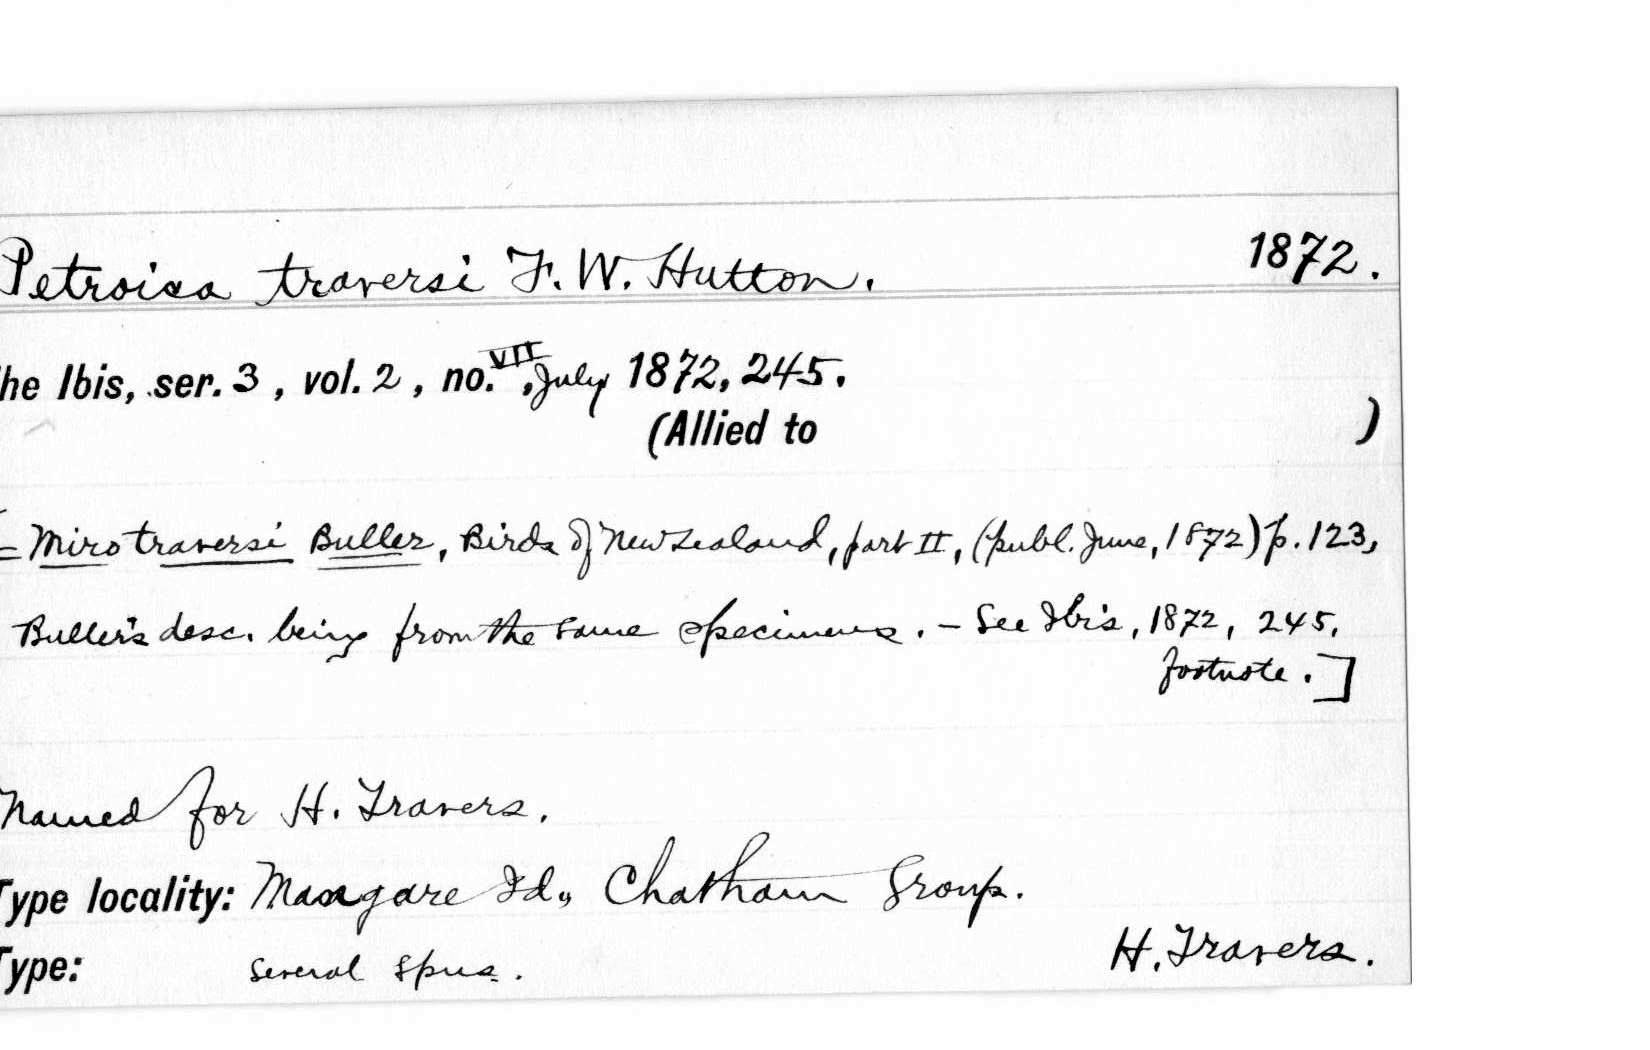 Petroica traversi F. W. Hutton. 1872.
he Ibis, ser. 3, vol. 2, no. VII, July 1872, 245.
(Allied to )
= Miro traversi Buller, Birds of New Zealand, part II, (publ. June, 1872) p. 123,
Buller's desc. being from the same specimens. - See Ibis, 1872, 245,
footnote.]
Named for H. Travers.
Type locality: Mangare Id., Chatham Group.
H. Travers.
Type: Several spns.